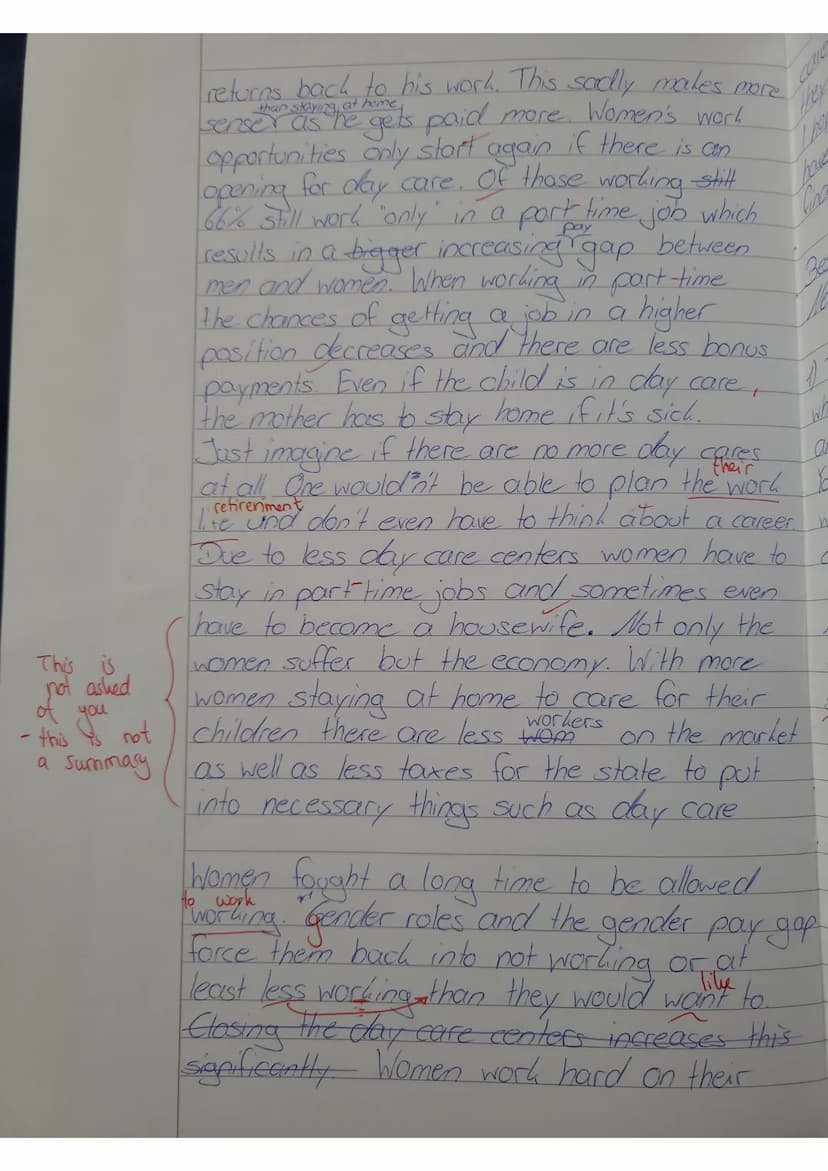 returns back to his work. This sadly makes more
than staying at home
sense as he gets paid more. Women's work
opportunities only start again if there is an
opening for day care. Of those working still
66% still work "only" in a part-time job which
pay
results in a bigger increasing gap between
men and women. When working in part-time
the chances of getting a job in a higher
position decreases and there are less bonus
payments. Even if the child is in day care,
the mother has to stay home if it's sick.
Just imagine if there are no more day cares
their
at all. One wouldn't be able to plan the work
retirenment
life und don't even have to think about a career.
Due to less day care centers women have to
stay in part-time jobs and sometimes even
have to become a housewife. Not only the
women suffer but the economy. With more
women staying at home to care for their
workers
children there are less wom on the market
as well as less taxes for the state to put
into necessary things such as day care
This is
not asked
of you
- this is not
a summary
Women fought a long time to be allowed
to work
working. Gender roles and the gender pay gap
force them back into not working or at
like
least less working than they would want to.
Closing the day care centers increases this
significantly Women work hard on their